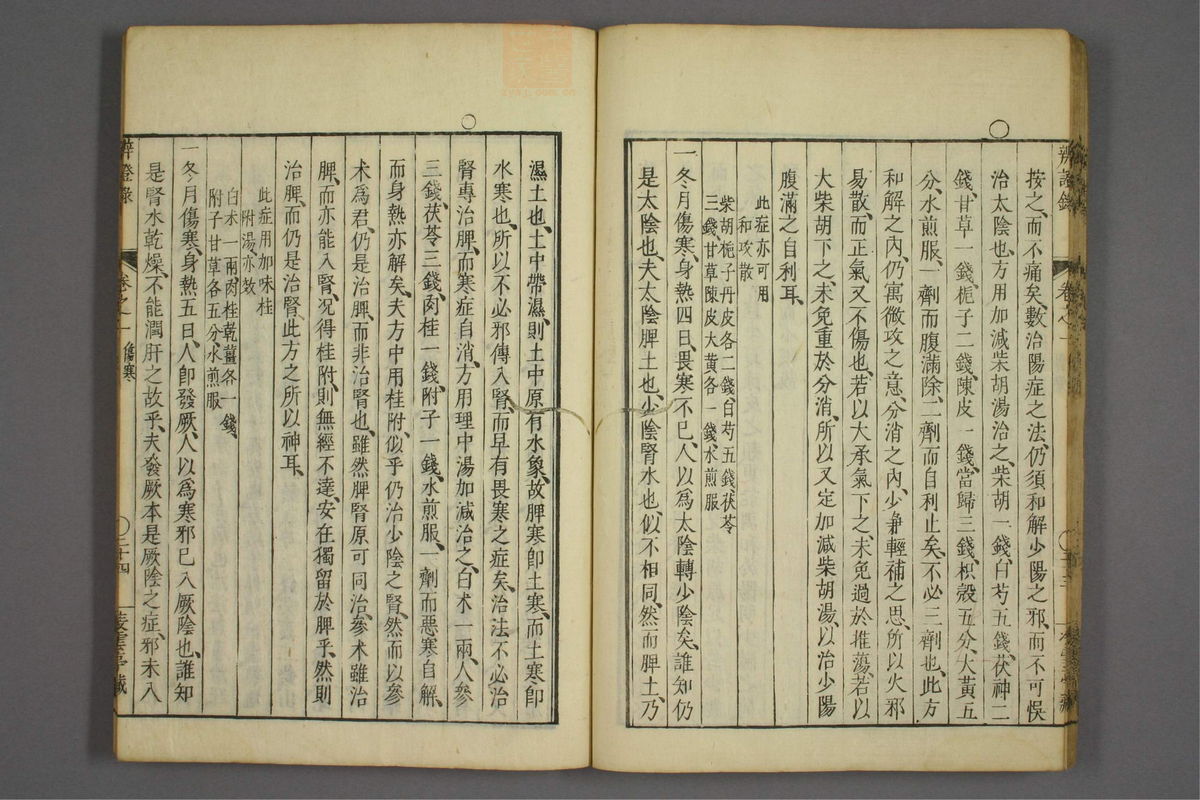 按之、而不痛矣、數治陽症之法、仍須和解少陽之邪、而不可悞
治太陰也、方用加減柴胡湯治之、柴胡一錢、白芍五錢、茯神二
錢、甘草一錢、梔子二錢、陳皮一錢、當歸三錢、枳殼五分、大黃五
分、水煎服、一劑而腹滿除、二劑而自利止矣、不必三劑也、此方
和解之內、仍寓微攻之意、分消之內、少兼輕補之思、所以火邪
易散、而正氣又不傷也、若以大承氣下之、未免過於推蕩、若以
大柴胡下之、未免重於分消、所以又定加減柴胡湯、以治少陽
腹滿之自利耳、
此症亦可用
和攻散
柴胡梔子丹皮各二錢、白芍五錢、茯苓
三錢、甘草陳皮大黃各一錢、水煎服
一冬月傷寒、身熱四日、畏寒不已、人以爲太陰轉少陰矣、誰知仍
是太陰也、夫太陰脾土也、少陰腎水也、似不相同、然而脾土、乃
濕土也、土中帶濕、則土中原有水象、故脾寒卽土寒、而土寒卽
水寒也、所以不必邪傳入腎、而早有畏寒之症矣、治法不必治
腎專治脾、而寒症自消、方用理中湯加減治之、白朮一兩、人參
三錢、茯苓三錢、肉桂一錢、附子一錢、水煎服、一劑而惡寒自解、
而身熱亦解矣、夫方中用桂附、似乎仍治少陰之腎、然而以參
朮爲君、仍是治脾、而非治腎也、雖然脾腎原可同治、參朮雖治
脾、而亦能入腎、況得桂附、則無經不達、安在獨留於脾乎、然則
治脾、而仍是治腎、此方之所以神耳、
此症用加味桂
附湯亦效
白朮一兩肉桂乾薑各一錢、
附子甘草各五分、水煎服
一冬月傷寒、身熱五日、人卽發厥、人以爲寒邪已入厥陰也、誰知
是腎水乾燥、不能潤肝之故乎、夫發厥本是厥陰之症、邪未入
辨證錄 卷之一 傷寒 二十四